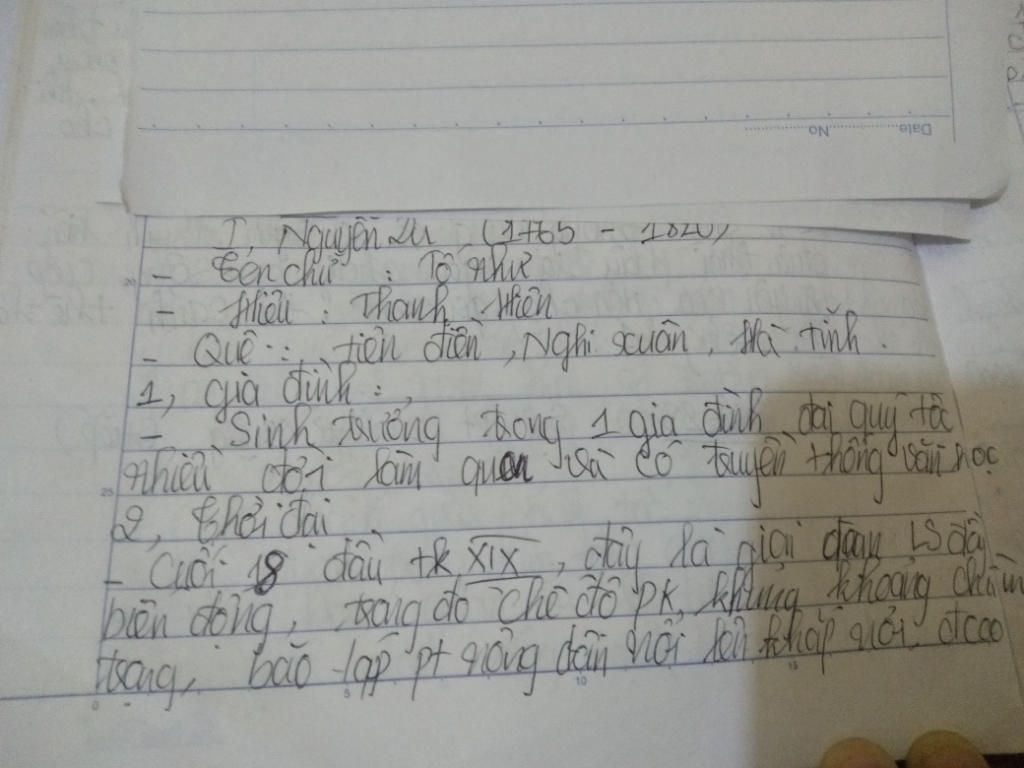 Date No
I, Nguyễn Du (1765 - 1820)
- tên chữ : Tố như
- Hiệu : Thanh Hiên
- Quê : tiên điền, Nghi xuân, Hà tĩnh.
1, gia đình :
- Sinh trưởng trong 1 gia đình đại quý tộc
nhiều đời làm quan và có truyền thống văn học
2, thời đại
- Cuối 18 đầu tk XIX, đây là giai đoạn LS đầy
biến động, trong đó chế độ PK khủng khoảng trầm
trọng, bão táp pt nông dân nổi lên khắp nơi, đỉnh cao